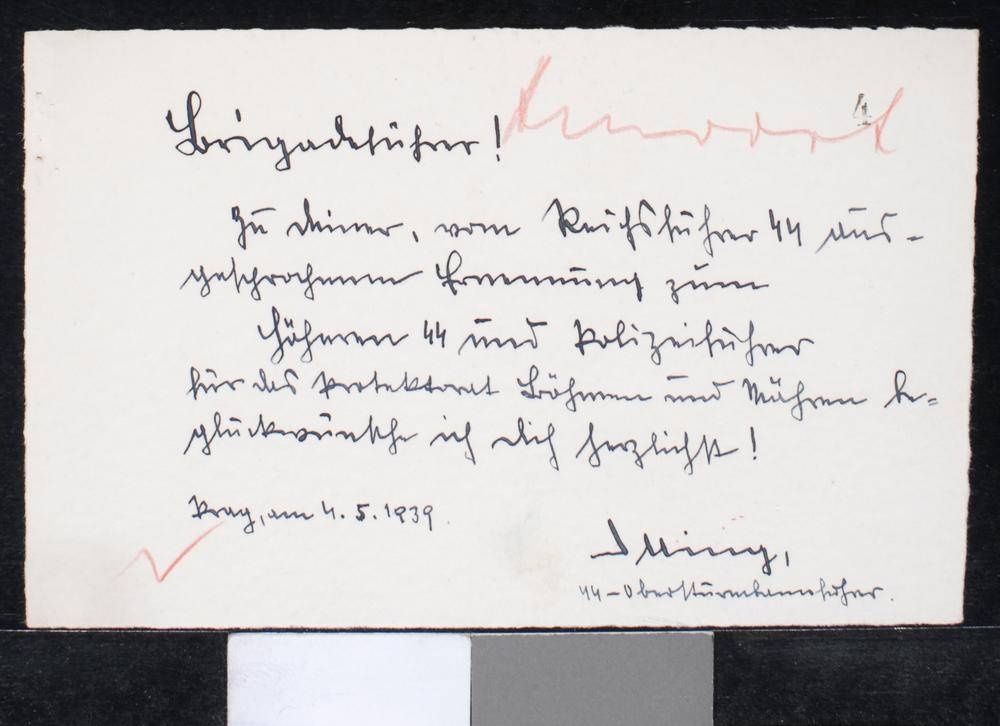 4
Brigadeführer!
Zu deiner, vom Reichsführer SS aus-
gesprochenen Ernennung zum
Höheren SS und Polizeiführer
für das Protektorat Böhmen und Mähren be-
glückwünsche ich dich herzlichst!
Prag, am 4.5.1939.
SS-Obersturmbannführer.